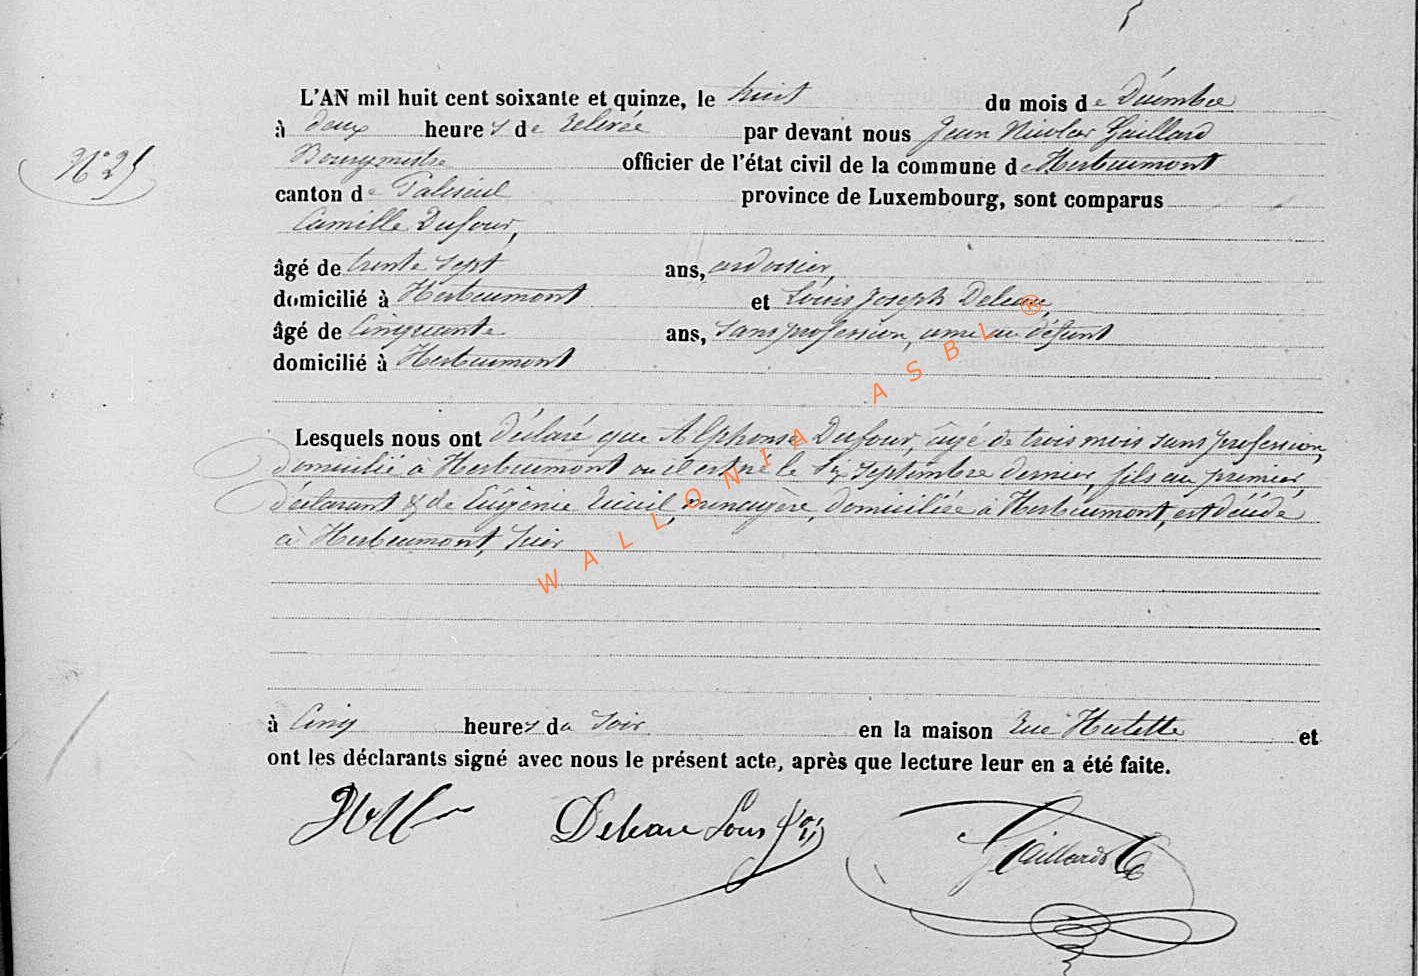 L'AN mil huit cent soixante et quinze, le huit du mois de Décembre
à deux heures de relevée par devant nous Jean Nicolas Gaillard
N° 25
Bourgmestre officier de l'état civil de la commune de Herbeumont
canton de Paliseul province de Luxembourg, sont comparus
Camille Dufour,
âgé de trente sept ans, ardoisier,
domicilié à Herbeumont et Louis Joseph Deleau,
âgé de Cinquante ans, sans profession, ami au défunt
domicilié à Herbeumont
Lesquels nous ont déclaré que Alphonse Dufour, âgé de trois mois sans profession,
domicilié à Herbeumont où il est né le six septembre dernier, fils au premier
déclarant & de Eugénie ménagère, domiciliée à Herbeumont, est décédé
à Herbeumont, hier
à Cinq heures du soir en la maison rue Hulette et
ont les déclarants signé avec nous le présent acte, après que lecture leur en a été faite.
Deleau Louis Gaillard
WALLONIA ASBL ®